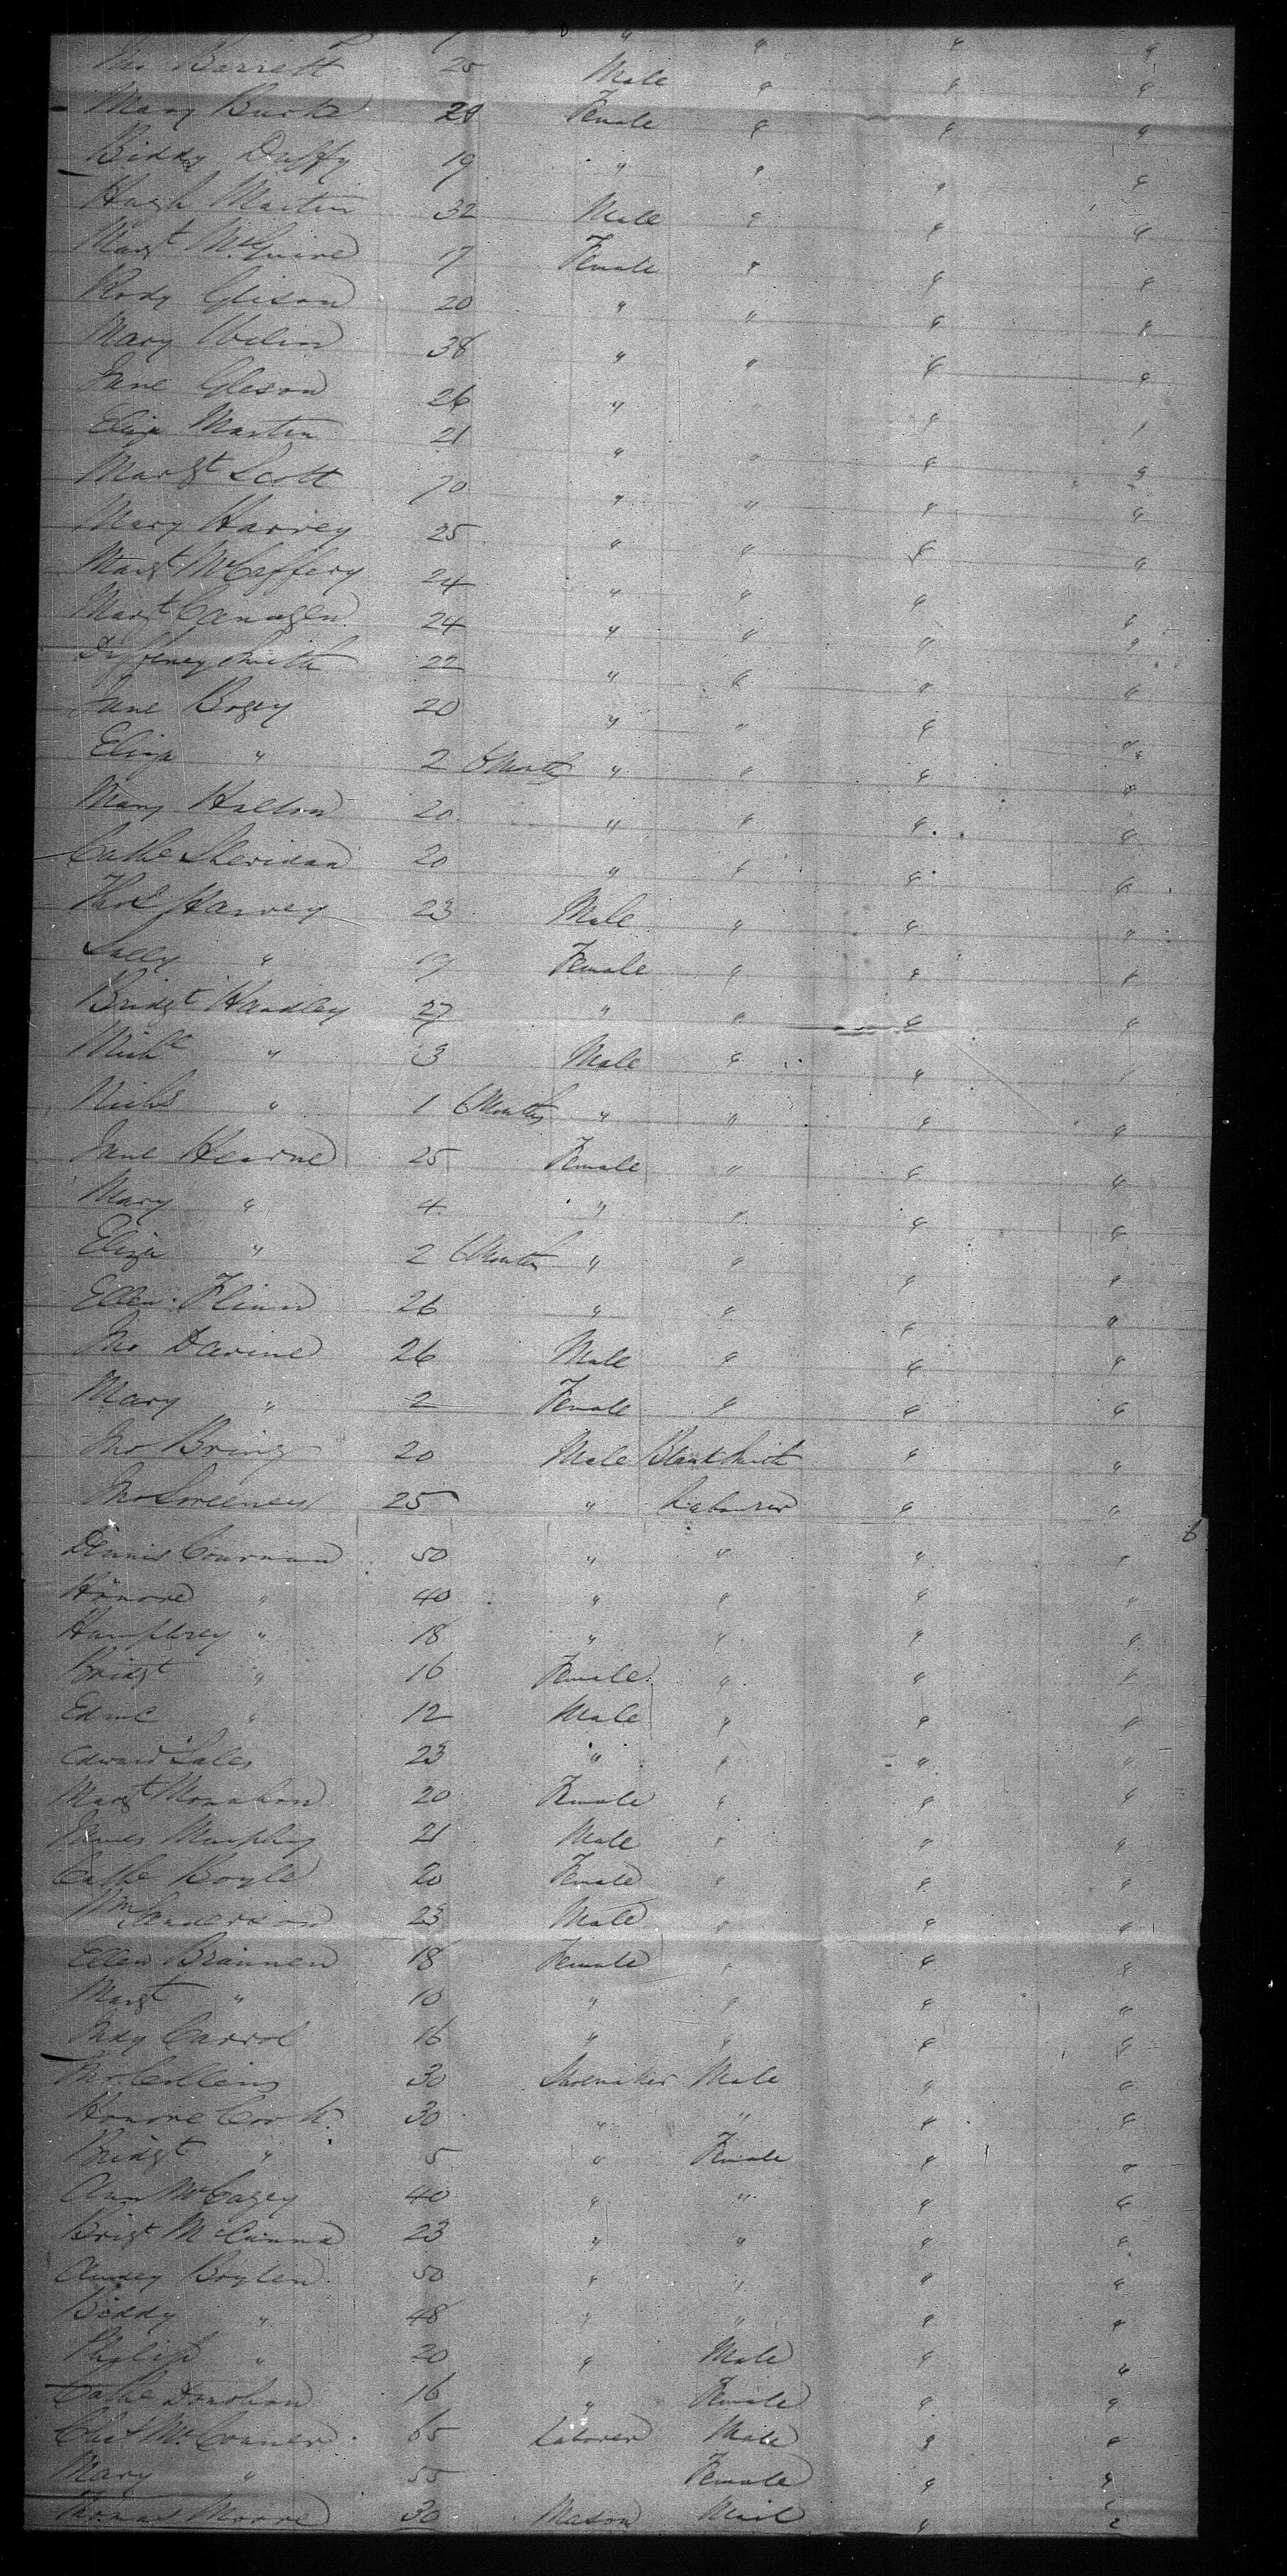 Jno Barrett 25 Male " " "
Mary Burke 28 Female " " "
Biddy Duffy 19 " " " "
Hugh Martin 32 Male " " "
Margt McGuire 17 Female " " "
Rody Glison 20 " " " "
Mary 38 " " " "
Jane Gleson 26 " " " "
Eliza Martin 21 " " " "
Margt Scott 70 " " " "
Mary Harvey 25 " " " "
Margt McCaffery 24 " " " "
Margt 24 " " " "
Smith 22 " " " "
Jane Bogey 20 " " " "
Eliza " 2 6 Months " " " "
Mary Hallon 20 " " " "
Cathe Sheridan 20 " " " "
Thos Harvey 23 Male " " "
Sally " 19 Female " " "
Bridgt Handley 27 " " " "
Michl " 3 Male " " "
Nichs " 1 6 Months " " " "
Jane Hearne 25 Female " " "
Mary " 4 " " " "
Eliza " 2 6 Months " " " "
Ellen Flinn 26 " " " "
Jno Davine 26 Male " " "
Mary " 2 Female " " "
Jno Bring 20 Male BlackSmith " "
Jno Sweeney 25 " Labourer " "
6
Dennis Counnan 50 " " " "
Honore " 40 " " " "
Humphrey " 18 " " " "
Bridgt " 16 Female " " "
Edmd " 12 Male " " "
Edward Sales 23 " " " "
Margt Monahon 20 Female " " "
James Murphy 21 Male " " "
Cathe Boyle 20 Female " " "
Wm Sanderson 23 Male " " "
Ellen Brannen 18 Female " " "
Margt " 10 " " " "
Judy Carrol 16 " " " "
Jno Collins 30 Shoemaker Male " "
Honore Cook 30 " " " "
Bridgt " 5 " Female " "
Ann McCagey 40 " " " "
Brigt McCanna 23 " " " "
Boylen 50 " " " "
Biddy " 48 " " " "
Philip " 20 " Male " "
Cathe Donohon 16 " Female " "
Chas McConner 65 Laborer Male " "
Mary " 55 Female " "
Thomas Moore 30 Mason Mail " "